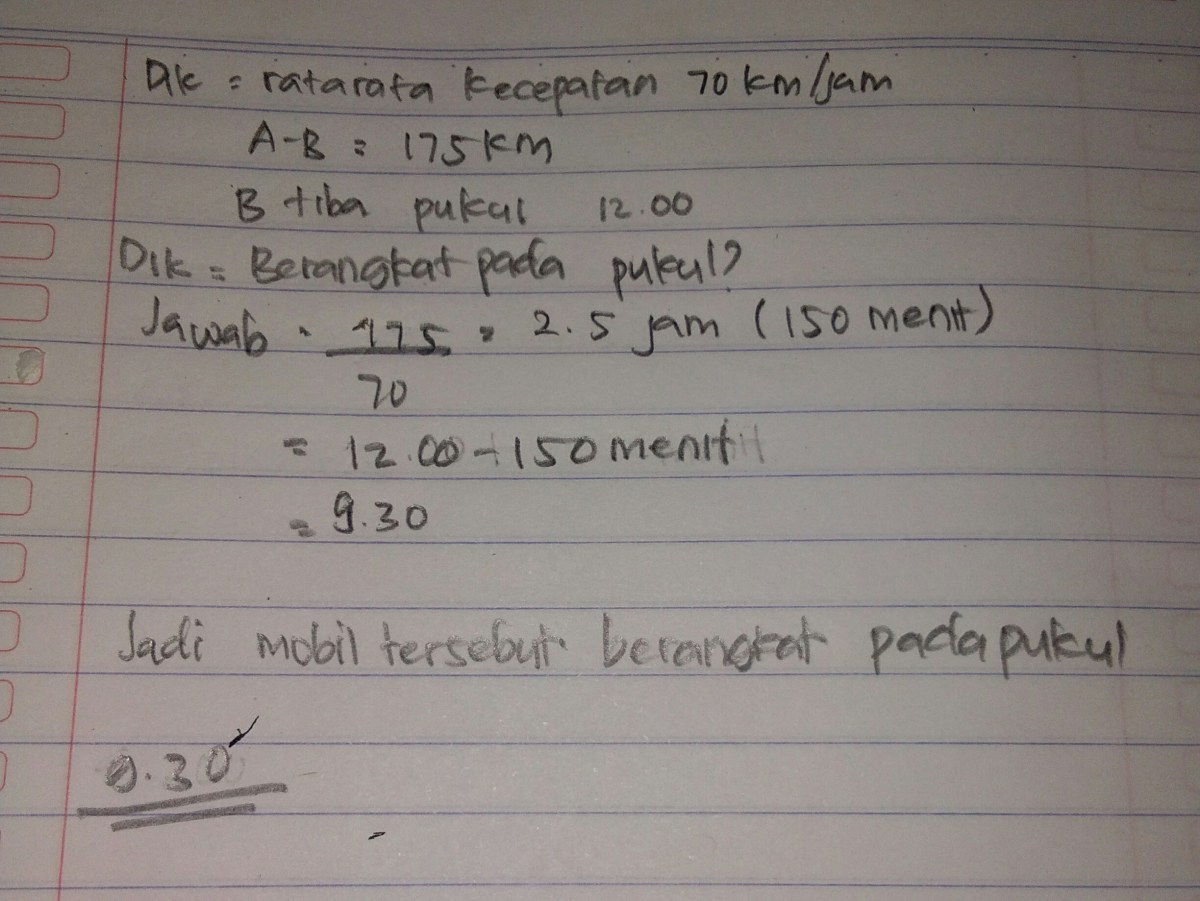 Dik = ratarata kecepatan 70 km/jam
A-B = 175 km
B tiba pukul 12.00
Dik = Berangkat pada pukul?
Jawab = 175 = 2.5 jam (150 menit)
70
= 12.00 - 150 menit
= 9.30
Jadi mobil tersebut berangkat pada pukul
9.30